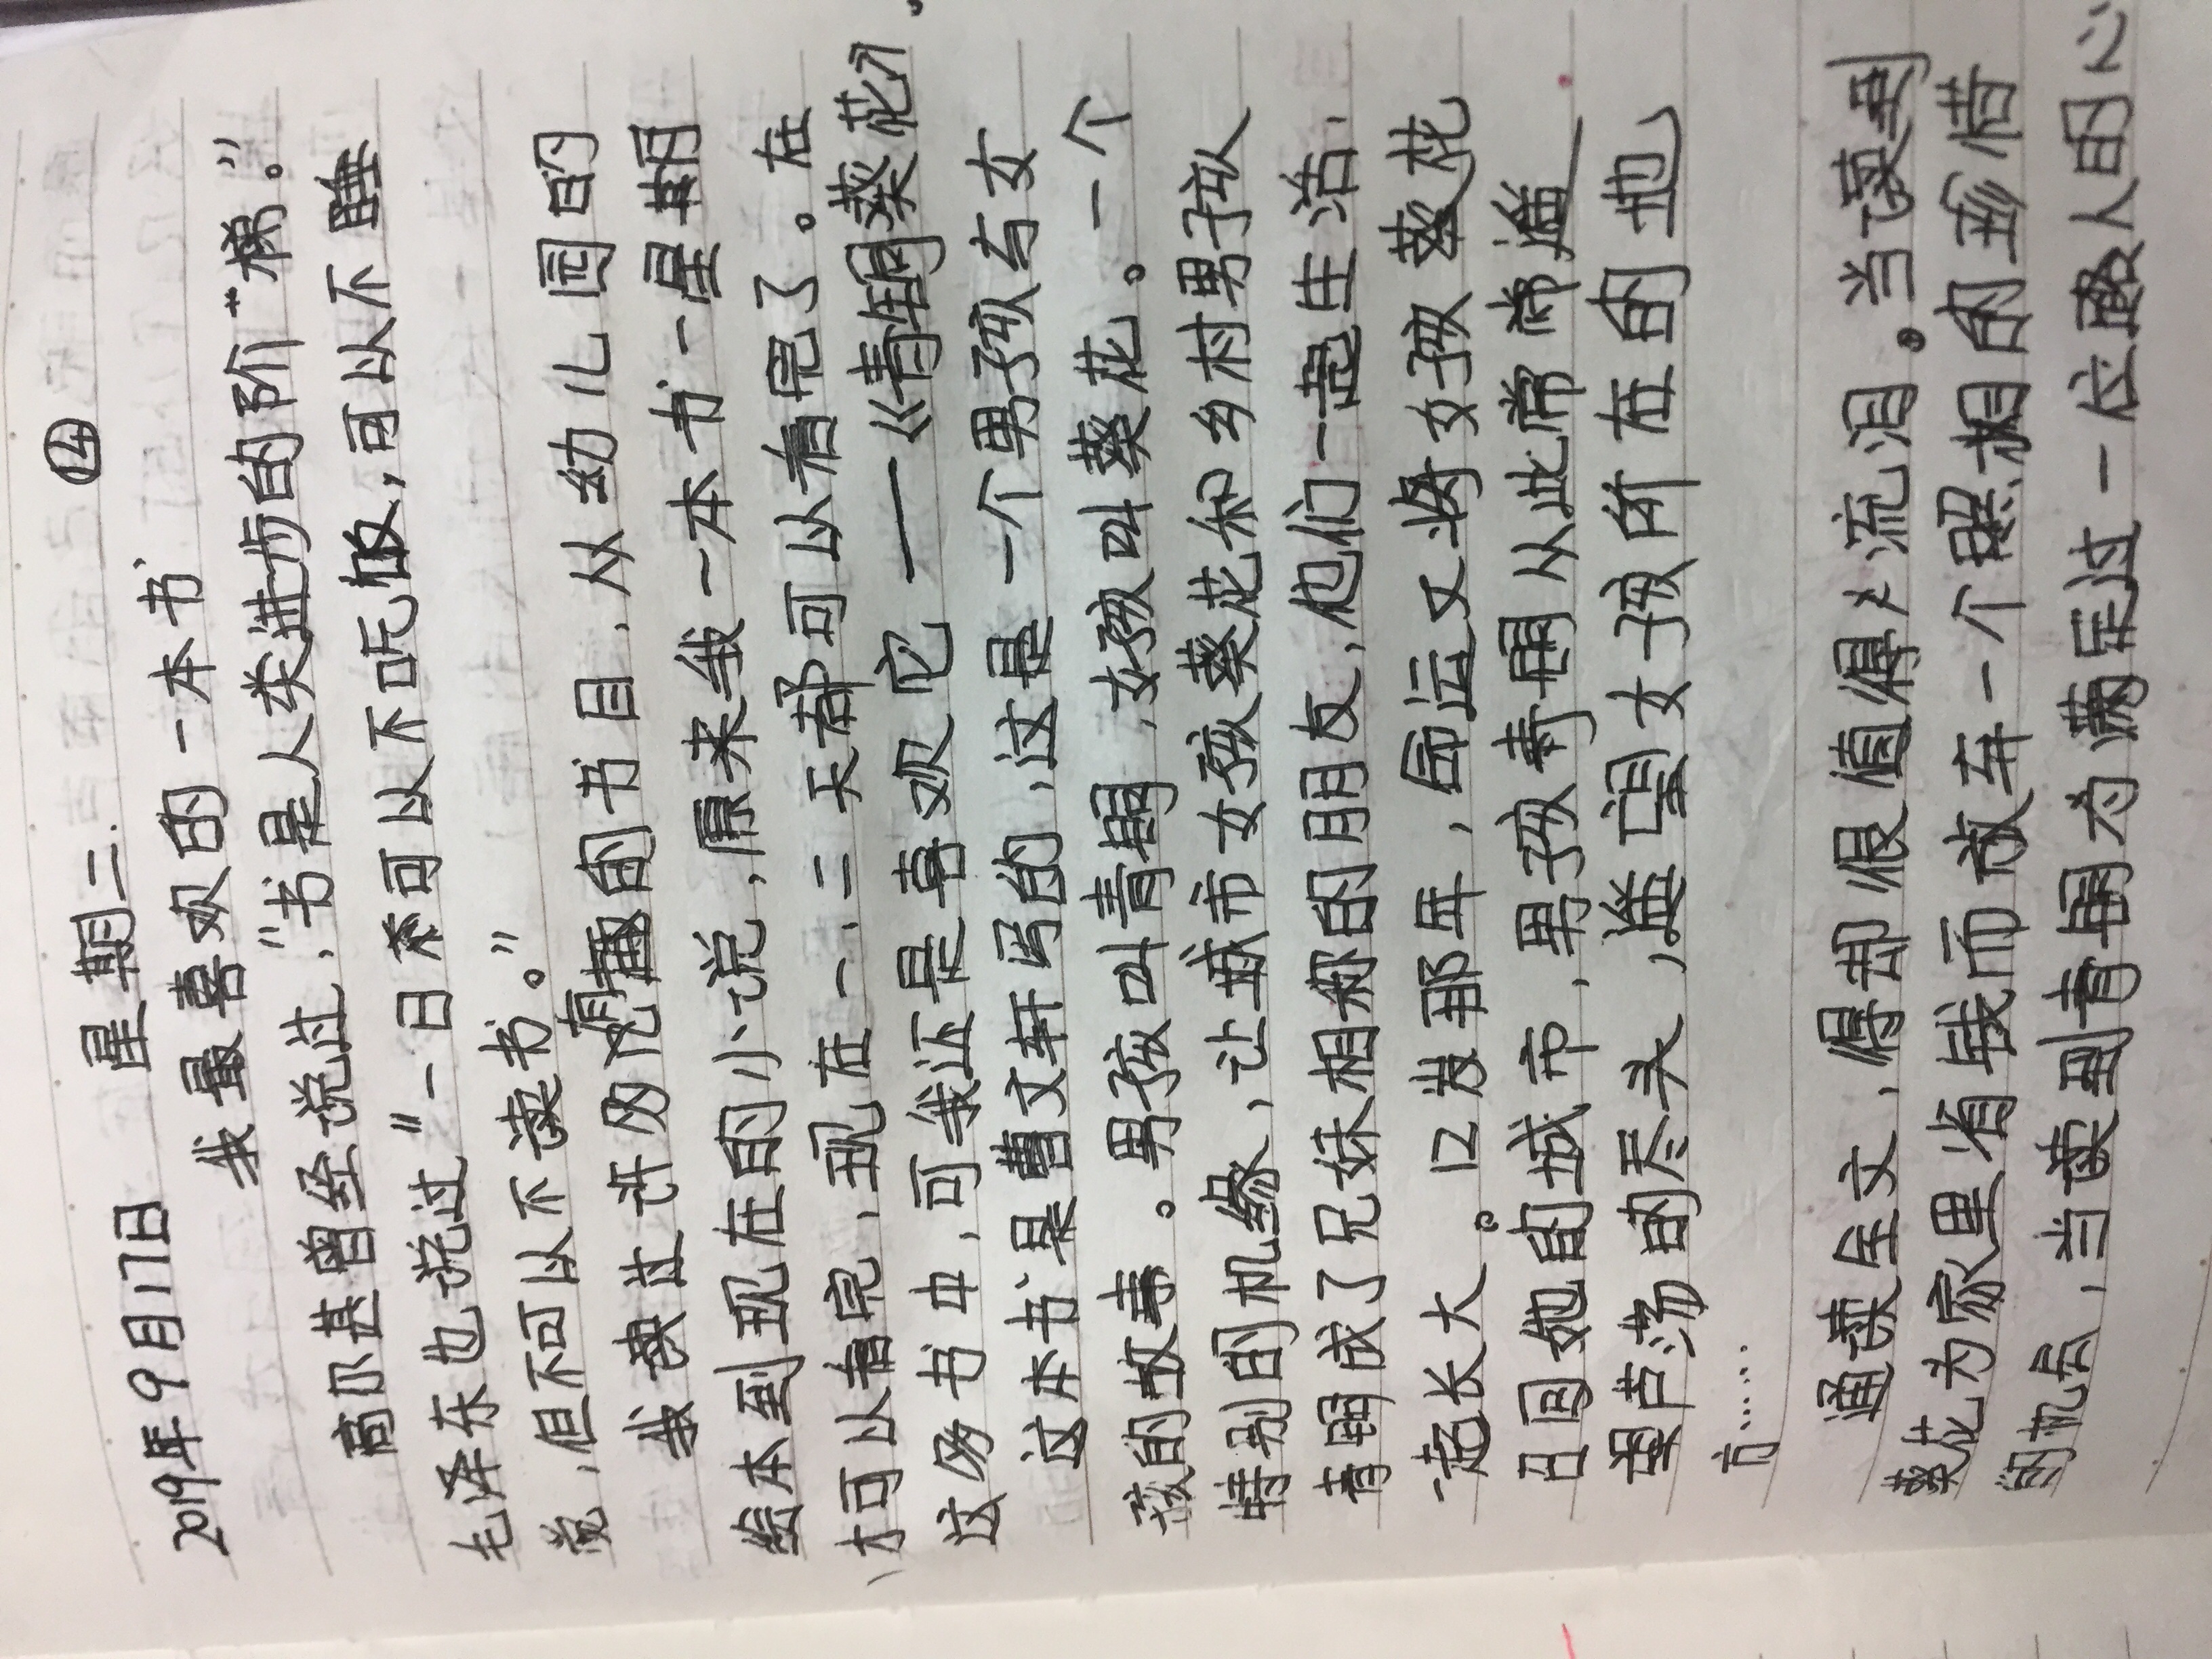 2019年9月17日 星期二 ④
我最喜欢的一本书
高尔基曾经说过,"书是人类进步的阶"梯。"
毛泽东也说过"一日可以不吃饭,可以不睡
觉,但不可以不读书。"
我读过许多有趣的书目,从幼儿园的
绘本到现在的小说,原来我一本书一星期
才可以看完,现在一、二天都可以看完了。在
这多书中,可我还是喜欢它——《青铜葵花》,
这本书是曹文轩写的,这是一个男孩与女
孩的故事。男孩叫青铜,女孩叫葵花。一个
特别的机缘,让城市女孩葵花和乡村男孩
青铜成了兄妹相称的朋友,他们一起生活、
一起长大。12岁那年,命运又将女孩葵花
召回她的城市,男孩青铜从此常常遥
望芦荡的尽头,遥望女孩所在的地
方……
通读全文,得却很值得人流泪。当读到
葵花为家里省钱而放弃一个照相的珍惜
的机会,当读到青铜为满足过一位路人的心